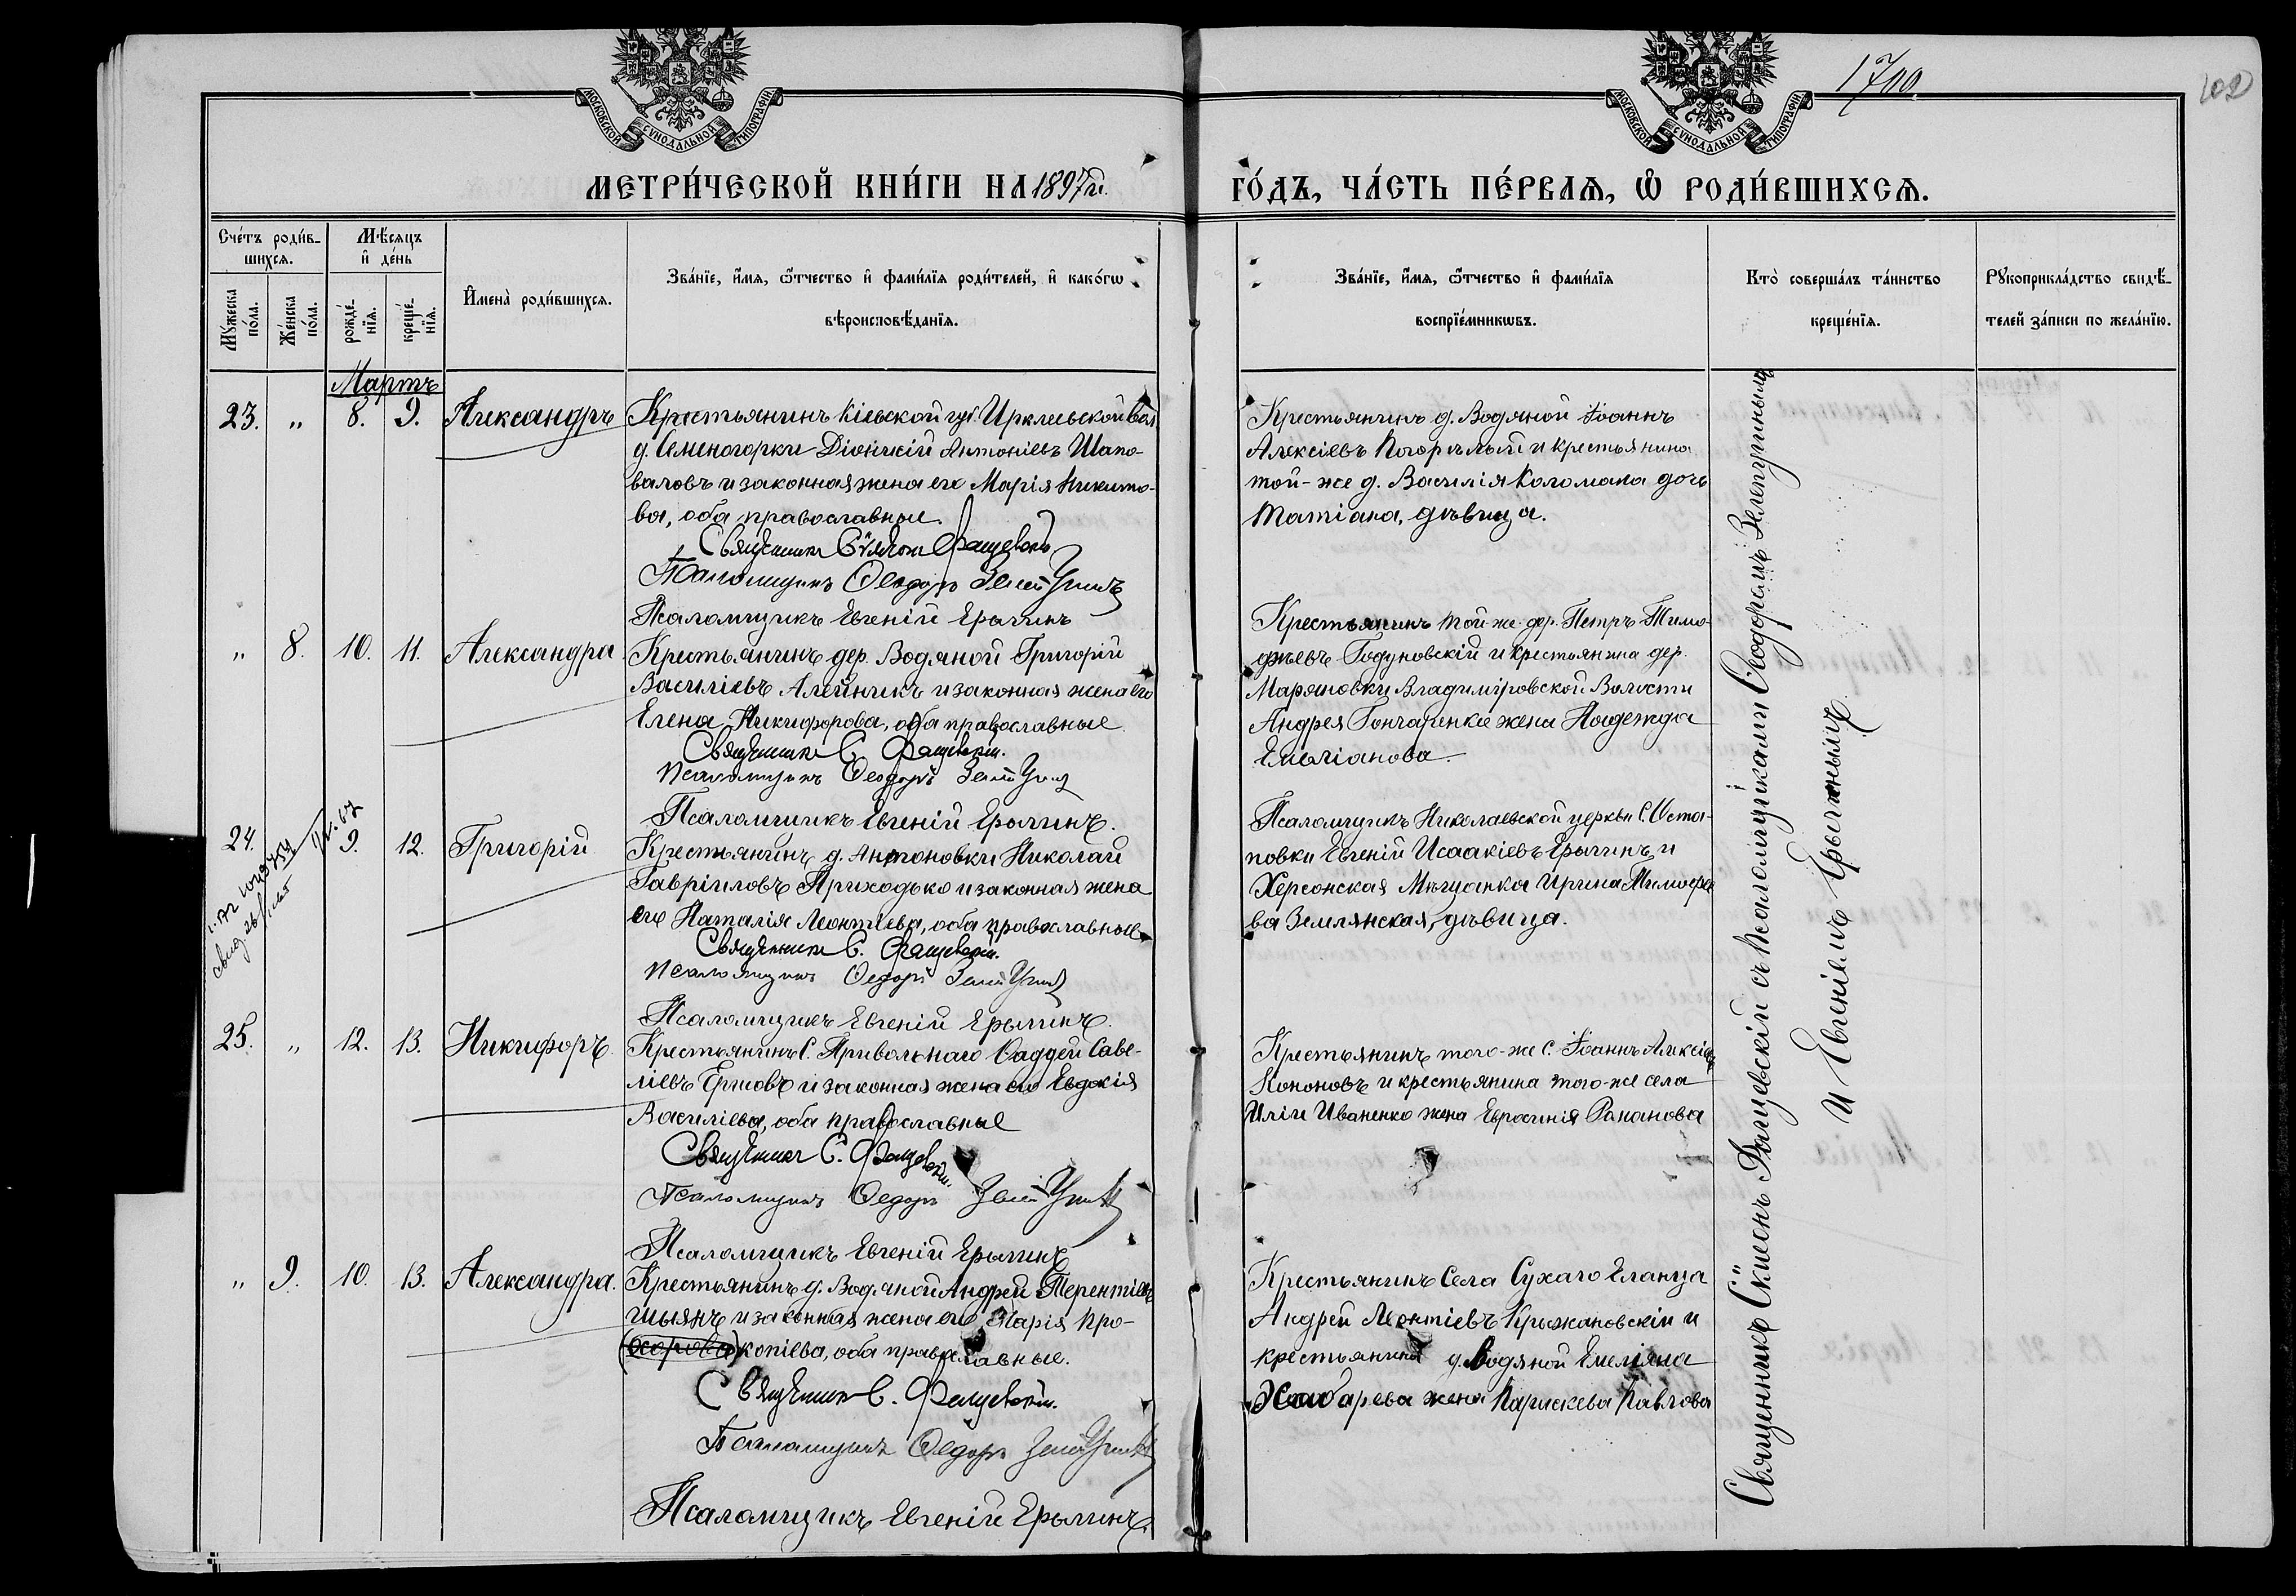 МОСКОВСКОЙ СѴНОДАЛЬНОЙ ТИПОГРАФІИ
МОСКОВСКОЙ СѴНОДАЛЬНОЙ ТИПОГРАФІИ
1700
102
МЕТРИ́ЧЕСКОЙ КНИ́ГИ НА 1897й
ГО́ДЪ, ЧА́СТЬ ПЕ́РВАѦ, Ѡ҆ РОДИ́ВШИХСѦ.
Сче́тъ роди́в-
шихсѧ.
Мѣ́сѧцъ
и҆ де́нь
Мꙋ́жеска
по́ла.
Же́нска
по́ла.
рожде́-
нїѧ.
креще́-
нїѧ.
И҆мена̀ роди́вшихсѧ.
Зва́нїе, и҆́мѧ, ѻ҆́тчество и҆ фами́лїѧ роди́телей, и҆ како́гѡ
вѣроисповѣ́данїѧ.
Зва́нїе, и҆́мѧ, ѻ҆́тчество и҆ фами́лїѧ
воспрїе́мникѡвъ.
Кто̀ соверша́лъ та́инство
креще́нїѧ.
Рꙋкоприкла́дство свидѣ́-
телей за́писи по жела́нїю.
Мартъ
23. " 8. 9. Александръ
Крестьянинъ Кіевской губ. Ирклеевской вол
д. Семеногорки Діонисій Антоніевъ Шапо-
валовъ и законная жена его Марія Никито-
ва, оба православные.
Священникъ Сѵмеонъ Фащевскій
Псаломщикъ Ѳеодоръ
Псаломщикъ Евгеній Ерыгинъ
Крестьянинъ д. Водяной Іоаннъ
Алексіевъ Погорѣлый и крестьянина
той-же д. Василія Коломака дочь
Татіана, дѣвица.
" 8. 10. 11. Александра
Крестьянинъ дер. Водяной Григорій
Василіевъ Алейникъ и законная жена его
Елена Никифорова, оба православные
Священникъ С. Фащевскій.
Псаломщикъ Ѳеодоръ
Псаломщикъ Евгеній Ерыгинъ.
Крестьянинъ той же дер. Петръ Тимо-
феевъ Годуновскій и крестьянина дер.
Маряновки Владиміровской Волости
Андрея Гончаренка жена Надежда
Емеліанова.
24. 9. 12. Григорій
Крестьянинъ д. Антоновки Николай
Гавріиловъ Приходько и законная жена
его Наталія Леонтіева, оба православные
Священникъ С. Фащевскій.
Псаломщикъ Ѳедоръ
Псаломщикъ Евгеній Ерыгинъ.
Псаломщикъ Николаевской церкви С. Оста-
повки Евгеній Исаакіевъ Ерыгинъ и
Херсонская Мѣщанка Ирина Тимофее
ва Землянская, дѣвица.
25. " 12. 13. Никифоръ
Крестьянинъ С. Привольнаго Фаддей Саве-
ліевъ Ершовъ и законная жена его Евдокія
Василіева, оба православные
Священникъ С. Фащевскій.
Псаломщикъ Ѳедоръ
Псаломщикъ Евгеній Ерыгинъ
Крестьянинъ того-же С. Іоаннъ Алексіевъ
Кононовъ и крестьянина того-же села
Иліи Иваненко жена Евросинія Романова
" 9. 10. 13. Александра.
Крестьянинъ д. Водяной Андрей Терентіевъ
и законная жена его Марія Про-
(хорова) копіева, оба православные.
Священникъ С. Фащевскій.
Псаломщикъ Ѳедоръ
Псаломщикъ Евгеній Ерыгинъ.
Крестьянинъ Села Сухаго Еланца
Андрей Леонтіевъ Крыжановскій и
крестьянина д. Водяной Емеліана
жена Параскева Павлова
Священникъ Сѵмеонъ Фащевскій съ Псаломщиками Ѳеодоромъ Зелепугинымъ
и Евгеніемъ Ерыгинымъ.